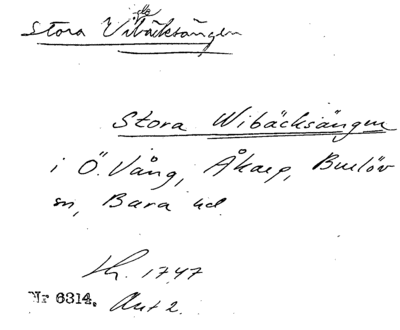 Stora Vibäcksängen
Stora Wibäcksängen
i Ö. Vång, Åkarp, Burlöv
sn, Bara hd.
1747
Nr 6314. Akt 2.